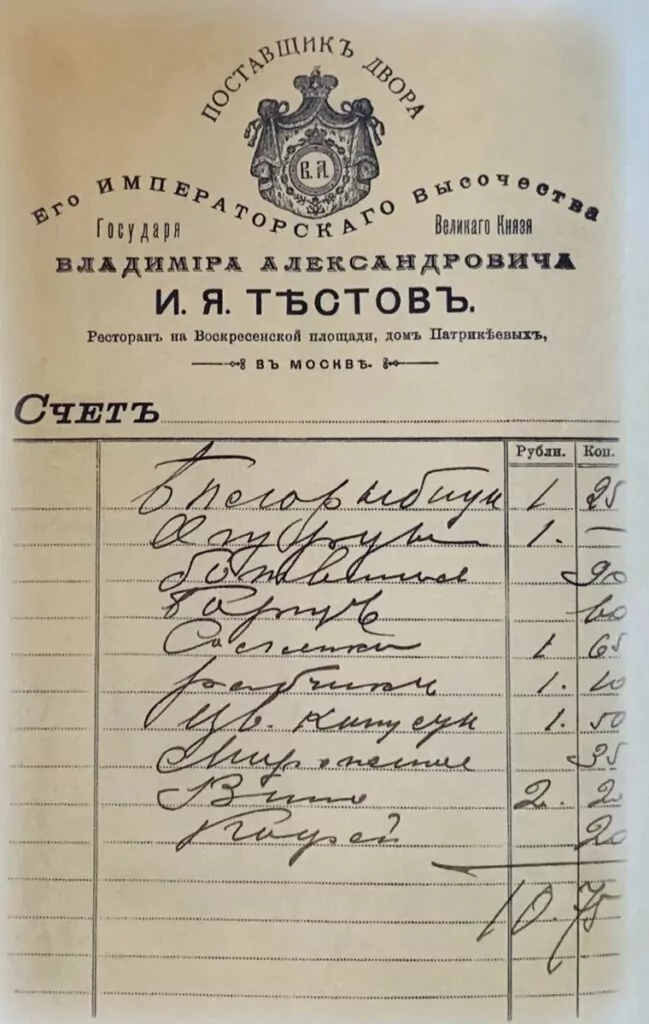 ПОСТАВЩИКЪ ДВОРА
В.А.
ЕГО ИМПЕРАТОРСКАГО ВЫСОЧЕСТВА
Государя Великаго Князя
ВЛАДИМІРА АЛЕКСАНДРОВИЧА
И. Я. ТѢСТОВЪ.
Ресторанъ на Воскресенской площади, домъ Патрикѣевыхъ,
ВЪ МОСКВѢ.
СЧЕТЪ
Рубли. Коп.
1 25
Огурцы 1. —
ботвинье 90
60
1 65
рябчикъ 1. 10
Цв. капусты 1. 50
Мороженое 35
Вино 2. 20
Кофей 20
10.75